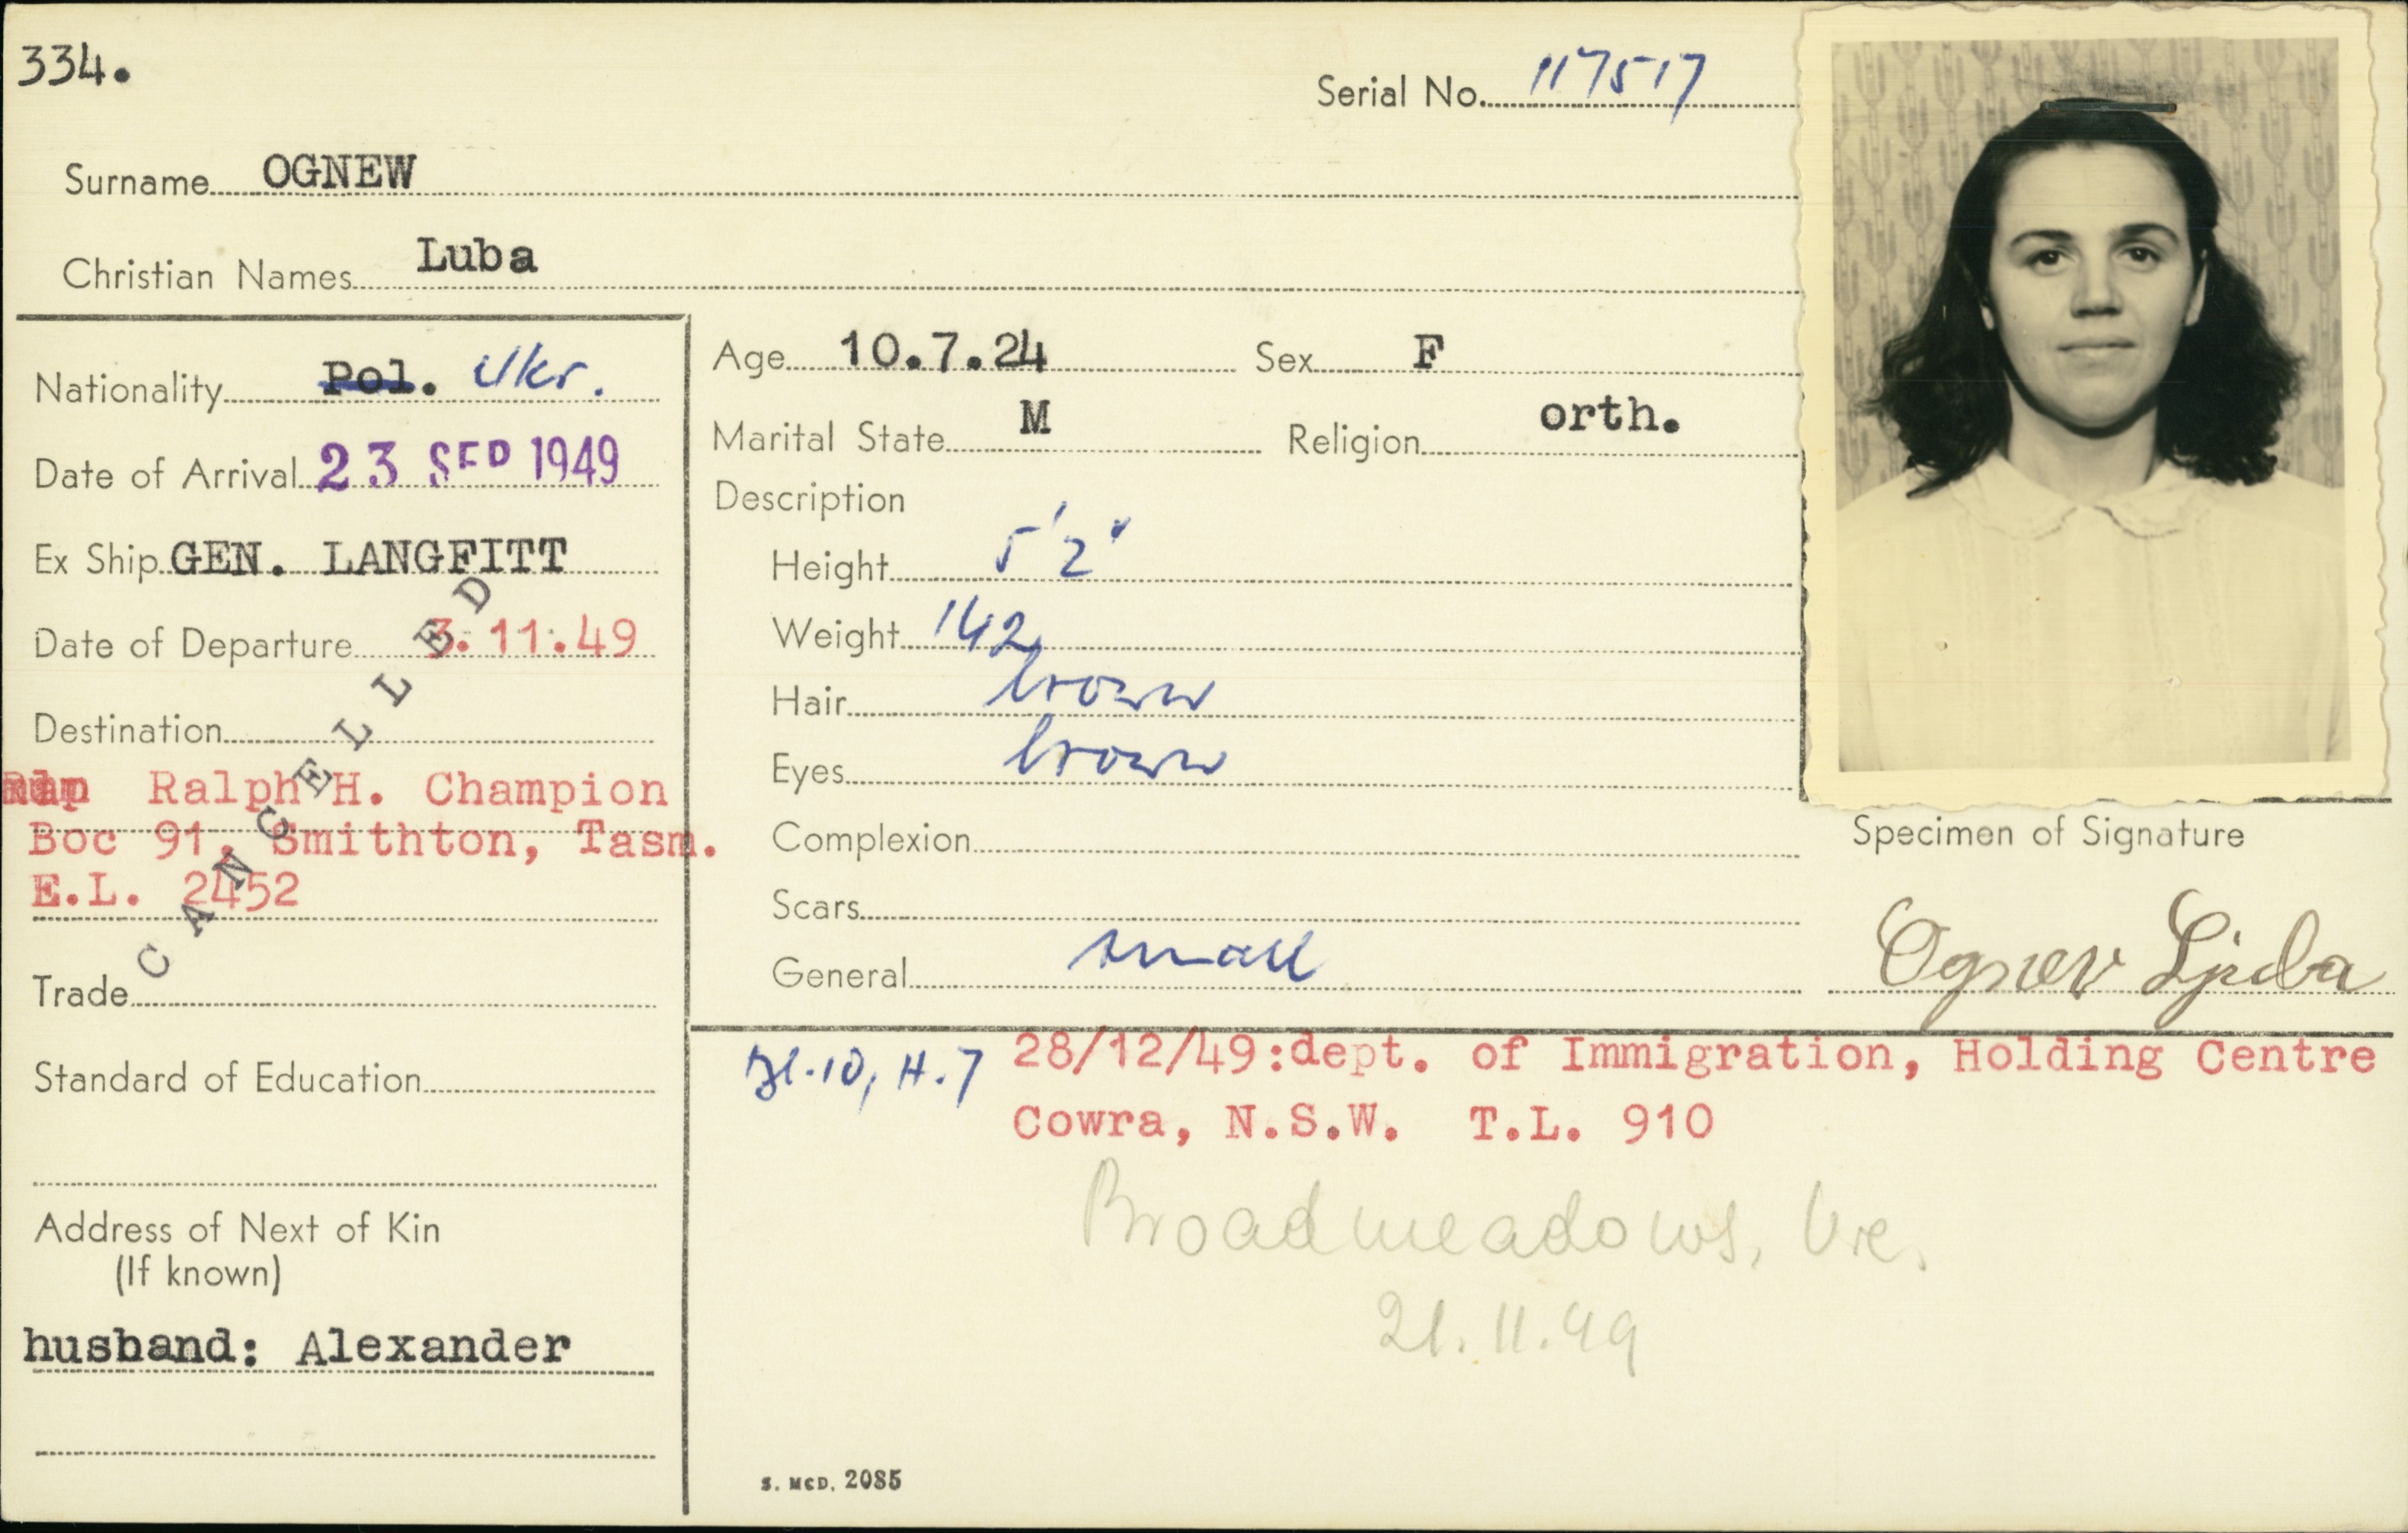 334.
Serial No. 117517
Surname OGNEW
Christian Names Luba
Nationality Pol. Ukr.
Date of Arrival 23 SEP 1949
Ex Ship GEN. LANGFITT
Date of Departure 3.11.49
Destination
Ralph H. Champion
Boc 91, Smithton, Tasm.
E.L. 2452
CANCELLED
Trade
Standard of Education
Address of Next of Kin
(If known)
husband: Alexander
Age 10.7.24 Sex F
Marital State M Religion orth.
Description
Height 5'2"
Weight 142
Hair brown
Eyes brown
Complexion
Scars
General small
Specimen of Signature
Ognew Ljuba
Bl.10, H.7 28/12/49:dept. of Immigration, Holding Centre
Cowra, N.S.W. T.L. 910
Broadmeadows, Vic.
21.11.49
S. McD. 2085